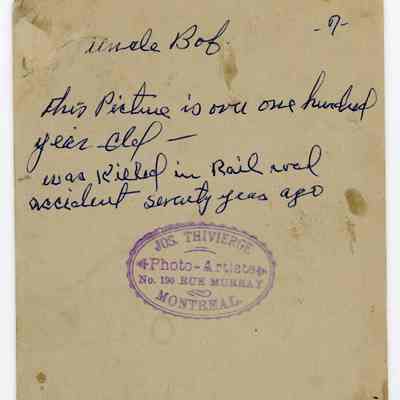 Uncle Bob.
-7-
This Picture is over one hundred
year old —
was Killed in Rail road
accident seventy years ago
JOS. THIVIERGE
Photo-Artiste
No. 190 RUE MURRAY
MONTREAL